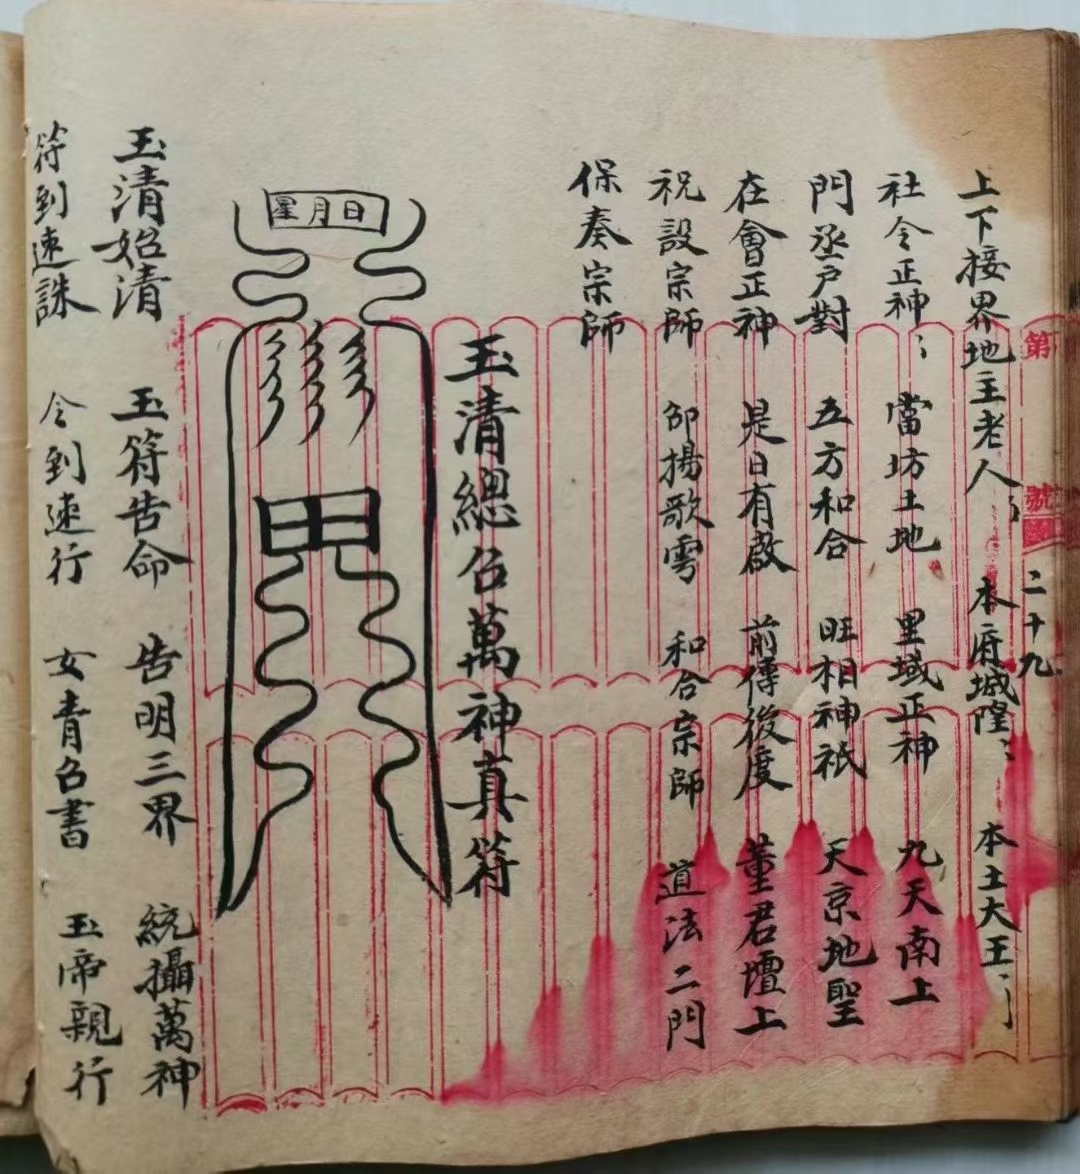 第 號
二十九
上下接界地主老人〻 本府城隍〻 本土大王〻
社令正神〻 當坊土地 里域正神 九天南上
門丞户對 五方和合 旺相神祇 天京地聖
在會正神 是日有啟 前傳後度 董君壇上
祝設宗師 邹揚歌雩 和合宗師 道法二門
保奏宗師
玉清總召萬神真符
日月星
甲
玉清始清 玉符告命 告明三界 統攝萬神
符到速誅 令到速行 女青召書 玉帝親行